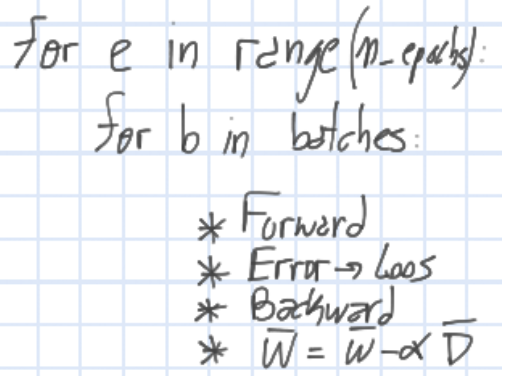 for e in range(n_epochs):
for b in batches:
* Forward
* Error → Loos
* Backward
* W̅ = W̅ - α D̅